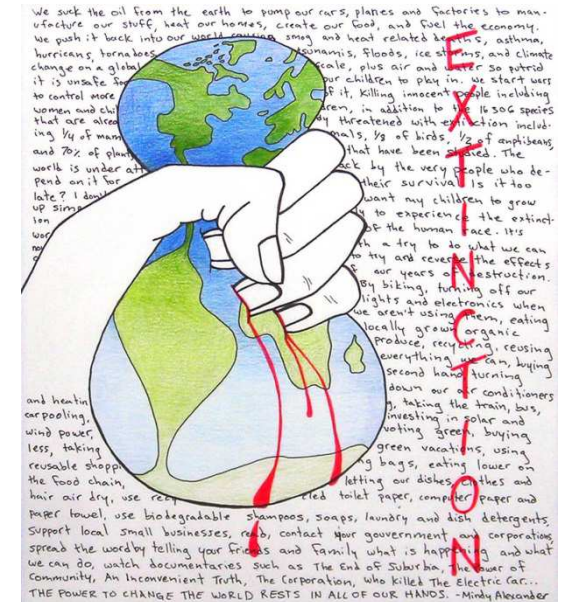 We suck the oil from the earth to pump our cars, planes and factories to man-
ufacture our stuff, heat our homes, create our food, and fuel the economy.
We push it back into our world causing smog and heat related deaths, asthma,
hurricans, tornadoes, tsunamis, floods, ice storms, and climate
change on a global scale, plus air and water so putrid
it is unsafe for our children to play in. We start wars
to control more of it, killing innocent people including
women and chil dren, in addition to the 16306 species
that are alrea dy threatened with extinction includ-
ing 1/4 of mam mals, 1/8 of birds, 1/2 of amphibeans,
and 70% of plant that have been studied. The
world is under att ack by the very people who de-
pend on it for their survival. Is it too
late? I don't want my children to grow
up simp to experience the extinct-
ion of the human race. It's
wor th a try to do what we can
to try and reverse the effects
of our years of destruction.
By biking, turning off our
lights and electronics when
we aren't using them, eating
locally grown organic
produce, recycling, reusing
everything we can, buying
second hand, turning
down our air conditioners
and heatin g, taking the train, bus,
carpooling, investing in solar and
wind power, voting green, buying
less, taking green vacations, using
reusable shoppi ng bags, eating lower on
the food chain, letting our dishes, clothes and
hair air dry, use recy cled toilet paper, computer paper and
paper towel, use biodegradable shampoos, soaps, laundry and dish detergents,
support local small businesses, read, contact your gouvernment and corporations,
spread the word by telling your friends and family what is happening and what
we can do, watch documentaries such as The End of Suburbia, The Power of
Community, An Inconvenient Truth, The Corporation, Who killed The Electric Car...
THE POWER TO CHANGE THE WORLD RESTS IN ALL OF OUR HANDS. -Mindy Alexander
EXTINCTION